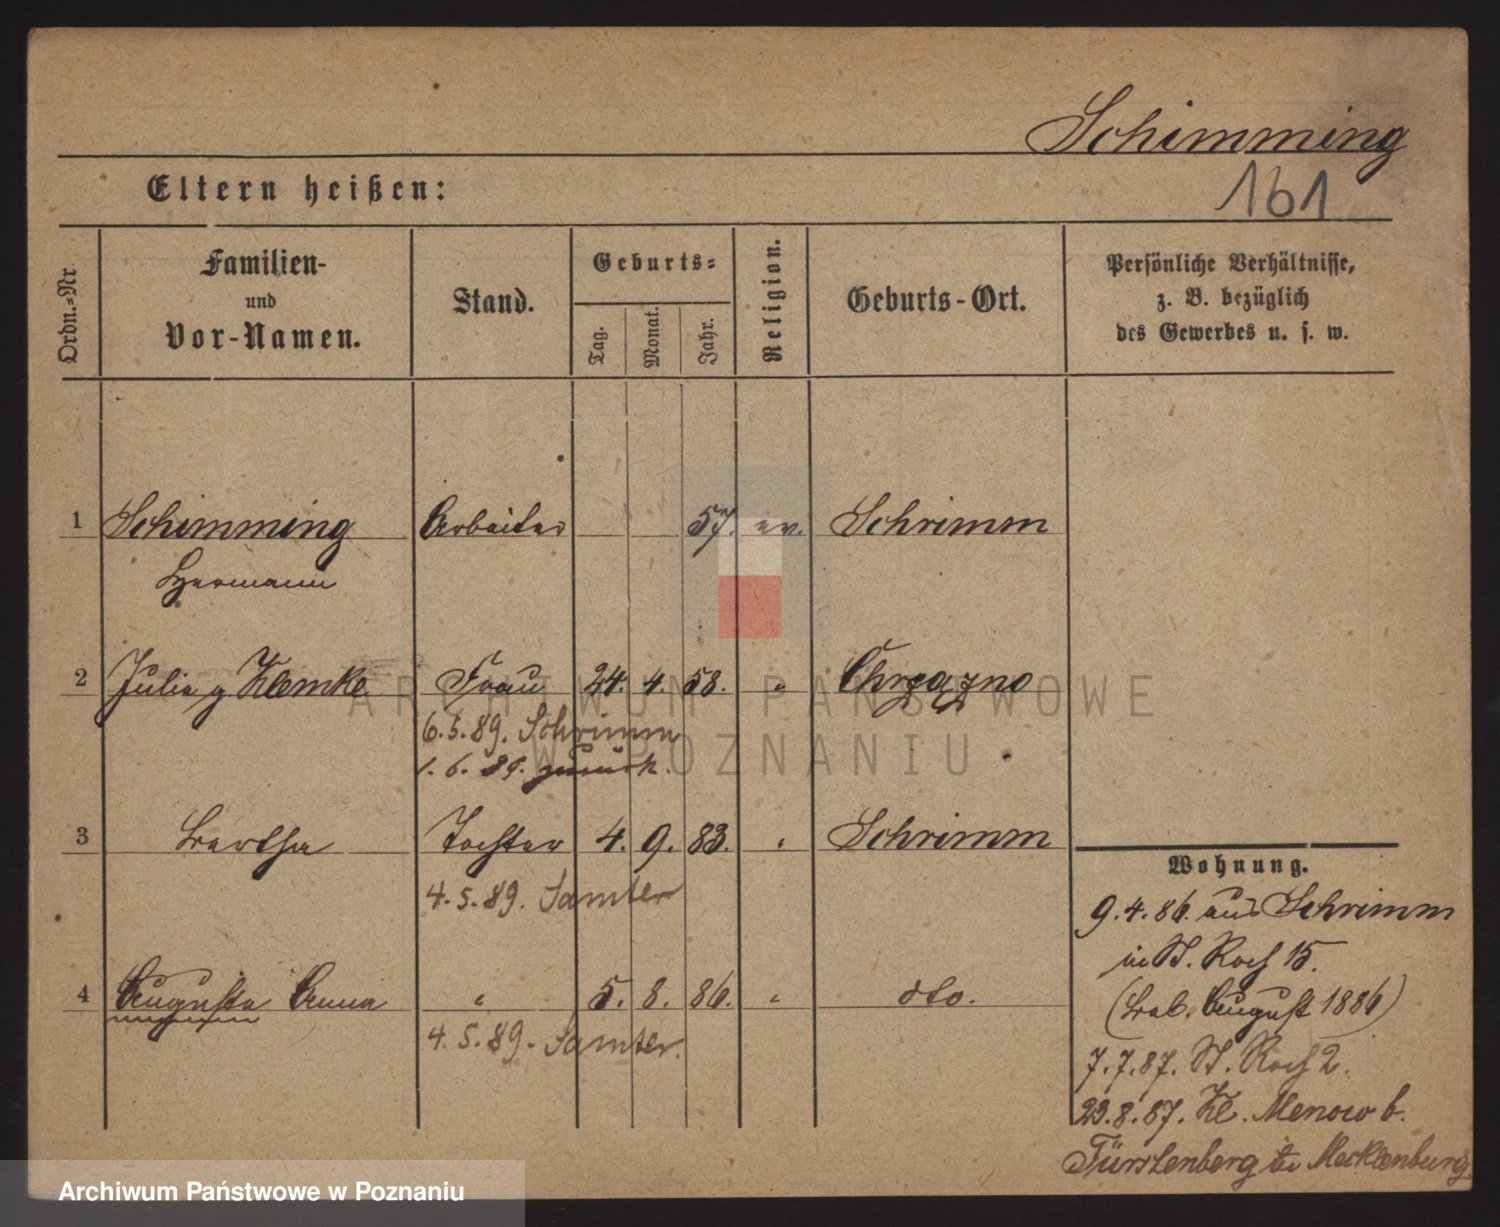 Schimming
161
Eltern heißen:
Ordn.-Nr.
Familien-
und
Vor-Namen.
Stand.
Geburts-
Tag.
Monat.
Jahr.
Religion.
Geburts-Ort.
Persönliche Verhältnisse,
z. B. bezüglich
des Gewerbes u. s. w.
1 Schimming Arbeiter 57. ev. Schrimm
Hermann
2 Julie g. Klemke Frau 24. 4. 58. " Chrząszno
6.5.89. Schrimm
1.6.89. zurück.
3 Bertha Tochter 4. 9. 83. " Schrimm
4.5.89. Samter
4 Auguste Anna " 5. 8. 86. " dto.
4.5.89. Samter.
Wohnung.
9.4.86. aus Schrimm
in St. Roch 15.
August 1886)
7.7.87. St. Roch 2.
23.8.87. Kl. Menow b.
Fürstenberg Mecklenburg
ARCHIWUM PAŃSTWOWE
W POZNANIU
Archiwum Państwowe w Poznaniu